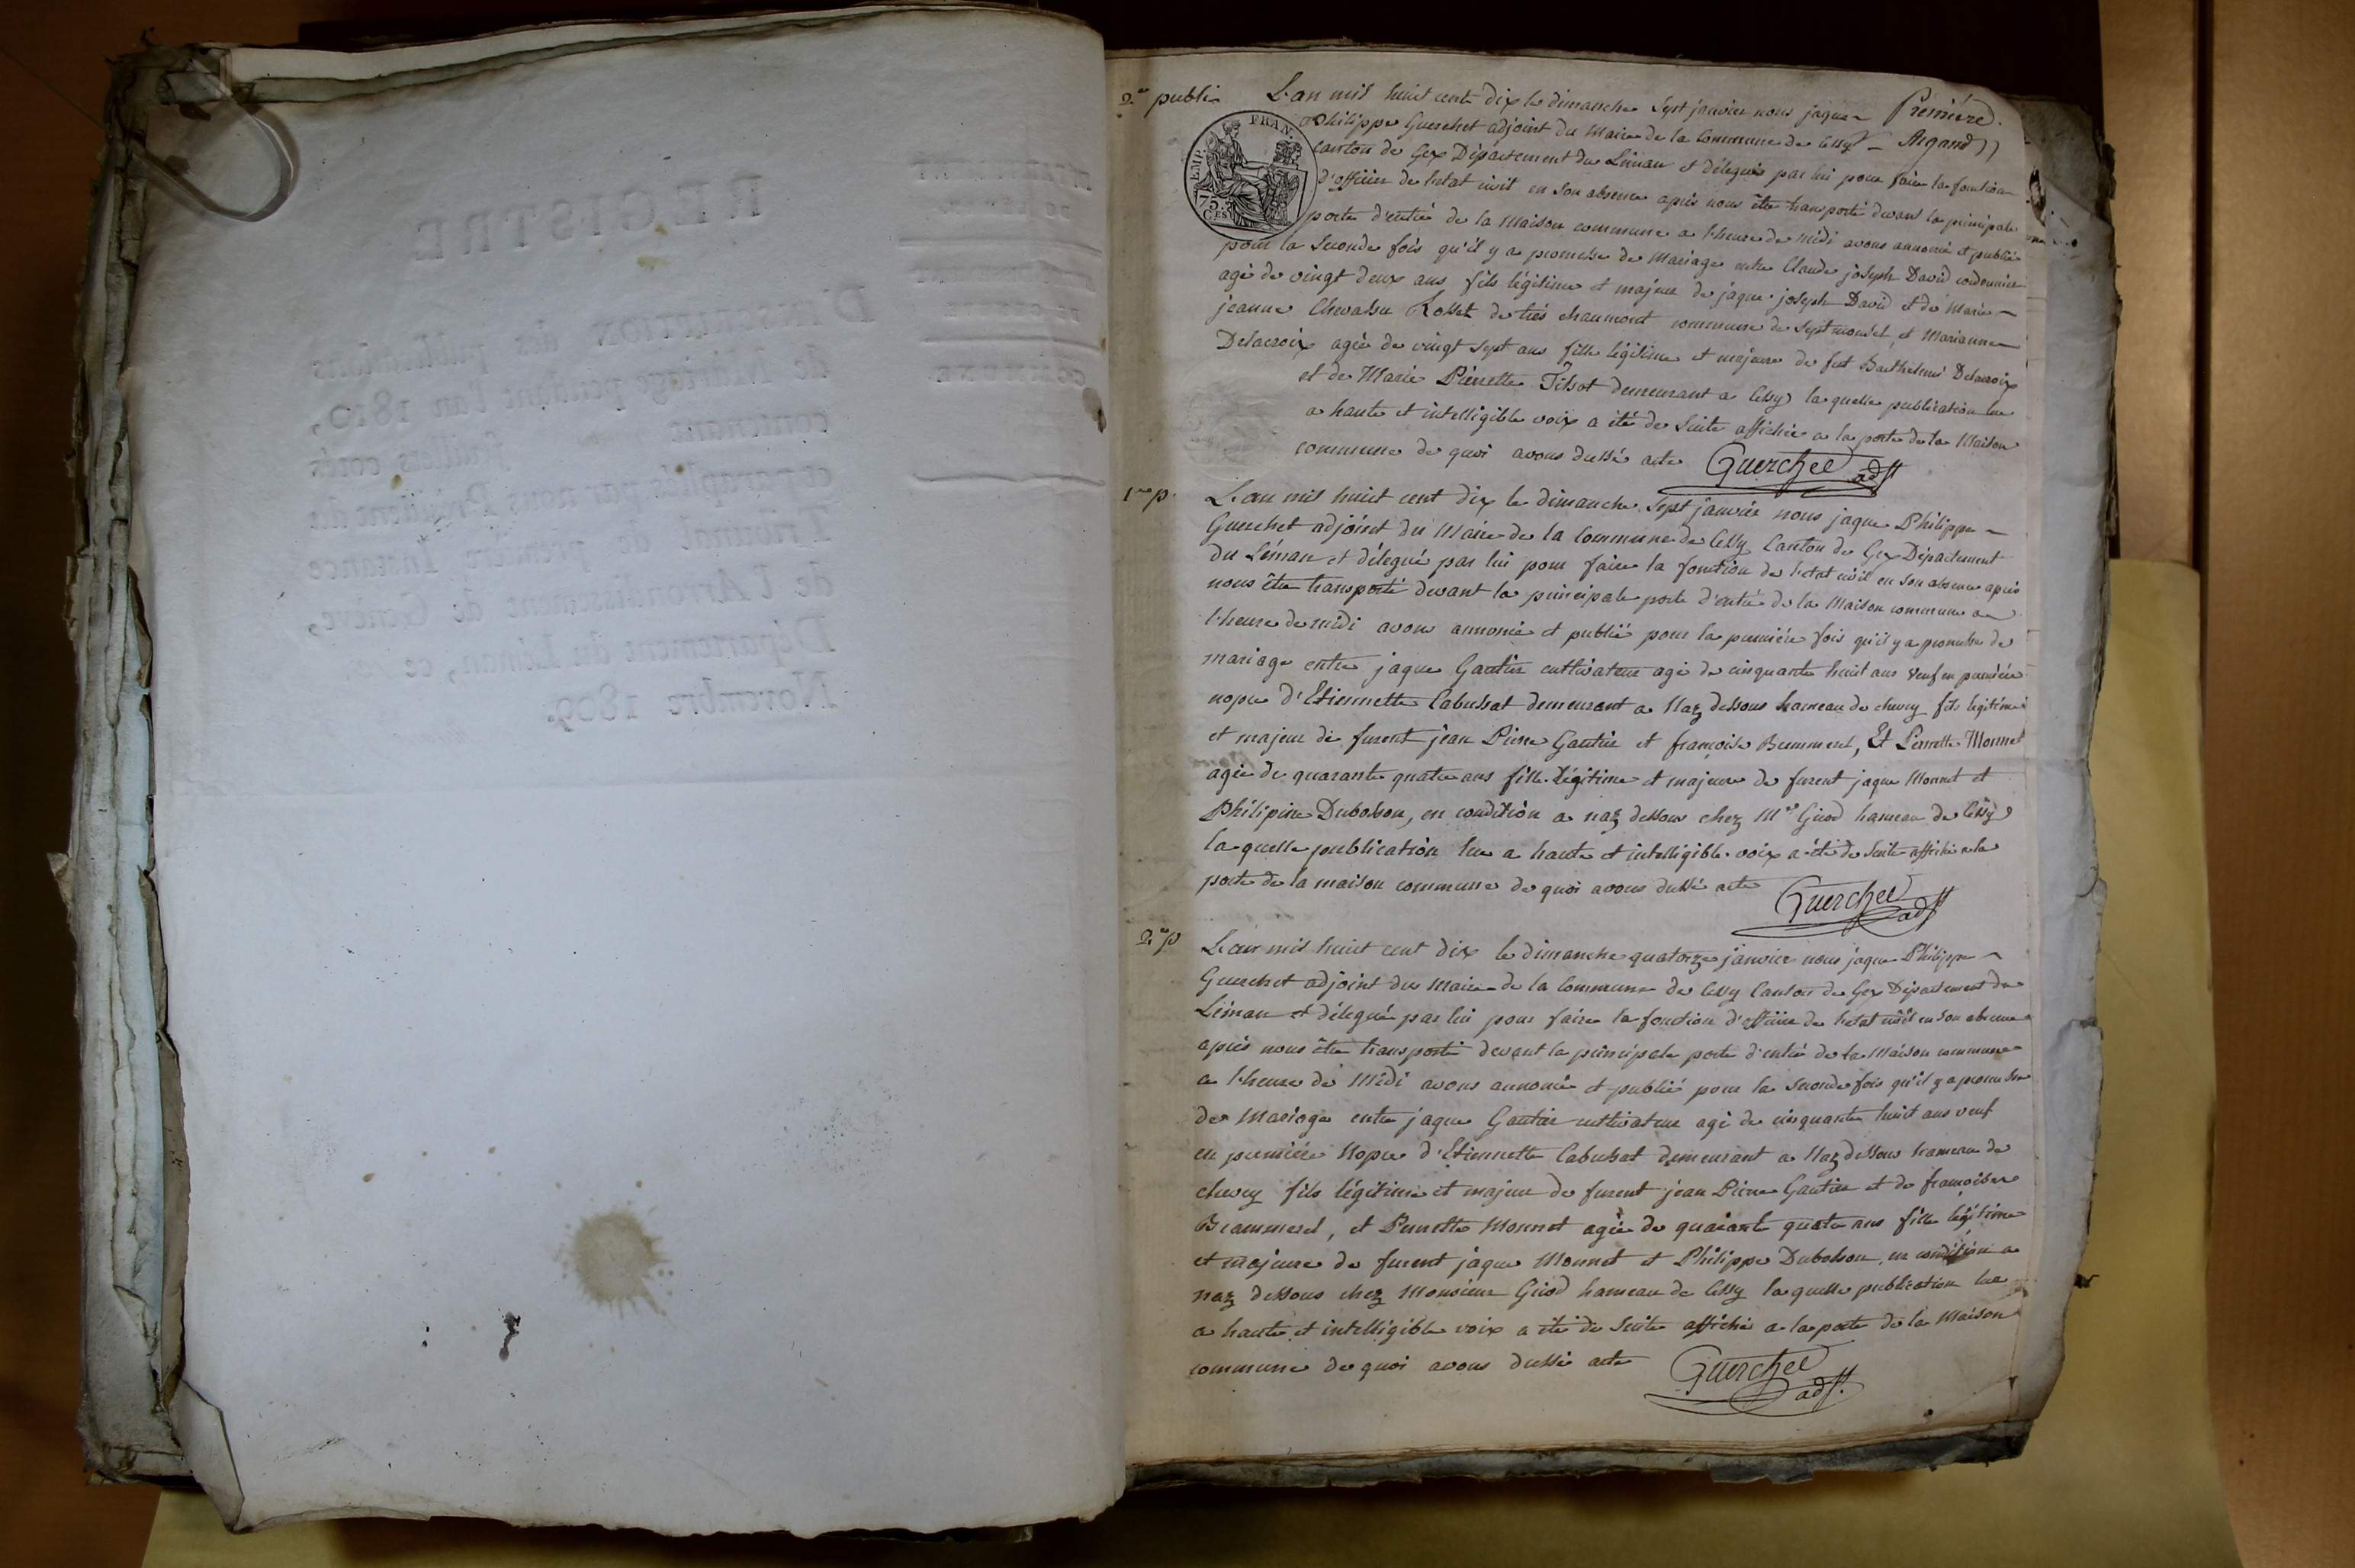 REGISTRE
DESTINATION des publications
de Mariage pendant l'an 1810,
contenant feuillets cotés
et paraphés par nous Président du
Tribunal de première Instance
de l'Arrondissement de Genève,
Département du Léman, ce
Novembre 1809.
DÉPARTEMENT
DU LÉMAN.
COMMUNE
2.e publi.
EMP. FRAN.
75. CES
Première.
Argand
L'an mil huit cent dix le dimanche sept janvier nous jaque
Philippe Guerchet adjoint du Maire de la Commune de Cessy
canton de Gex Département du Léman et délegué par lui pour faire la fonction
d'officier de l'etat civil en son absence après nous être transporté devant la principale
porte d'entrée de la Maison commune a l'heure de midi avons annoncé et publié
pour la seconde fois qu'il y a promesse de Mariage entre Claude joseph David cordonnier
agé de vingt deux ans fils légitime et majeur de jaque joseph David et de Marie
jeanne Rosset de très chaumont commune de Septmoncel, et Marianne
Delacroix agée de vingt sept ans fille légitime et majeure de fut Barthelemi Delacroix
et de Marie Pierrette Tissot demeurant a Cessy laquelle publication lue
a haute et intelligible voix a été de suite affichée a la porte de la Maison
commune de quoi avons dressé acte Guerchet adjt
1.re p.
L'an mil huit cent dix le dimanche sept janvier nous jaque Philippe
Guerchet adjoint du Maire de la Commune de Cessy Canton de Gex Département
du Léman et délegué par lui pour faire la fonction de l'etat civil en son absence après
nous être transporté devant la principale porte d'entrée de la Maison commune a
l'heure de midi avons annoncé et publié pour la première fois qu'il y a promesse de
mariage entre jaque Gautier cultivateur agé de cinquante huit ans veuf en première
nopce d'Etiennette Cabussat demeurant a Naz dessous hameau de chevry fils légitime
et majeur de furent jean Pierre Gautier et françoise, Et Perrette Monnet
agée de quarante quatre ans fille légitime et majeure de furent jaque Monnet et
Philipine Dubosson, en condition a naz dessous chez Mr Girod hameau de Cessy
laquelle publication lue a haute et intelligible voix a été de suite affiché a la
porte de la maison commune de quoi avons dressé acte Guerchet adjt
2.e p
L'an mil huit cent dix le dimanche quatorze janvier nous jaque Philippe
Guerchet adjoint du Maire de la Commune de Cessy Canton de Gex Département du
Léman et délegué par lui pour faire la fonction d'officier de l'etat civil en son absence
après nous être transporté devant la principale porte d'entrée de la Maison commune
a l'heure de Midi avons annoncé et publié pour la seconde fois qu'il y a promesse
de Mariage entre jaque Gautier cultivateur agé de cinquante huit ans veuf
en première Nopce d'Etiennette Cabussat demeurant a Naz dessous hameau de
chevry fils légitime et majeur de furent jean Pierre Gautier et de françoise
, et Perrette Monnet agée de quarante quatre ans fille légitime
et majeure de furent jaque Monnet et Philippe Dubosson, en condition a
naz dessous chez Monsieur Girod hameau de Cessy laquelle publication lue
a haute et intelligible voix a été de suite affiché a la porte de la Maison
commune de quoi avons dressé acte Guerchet adjt.